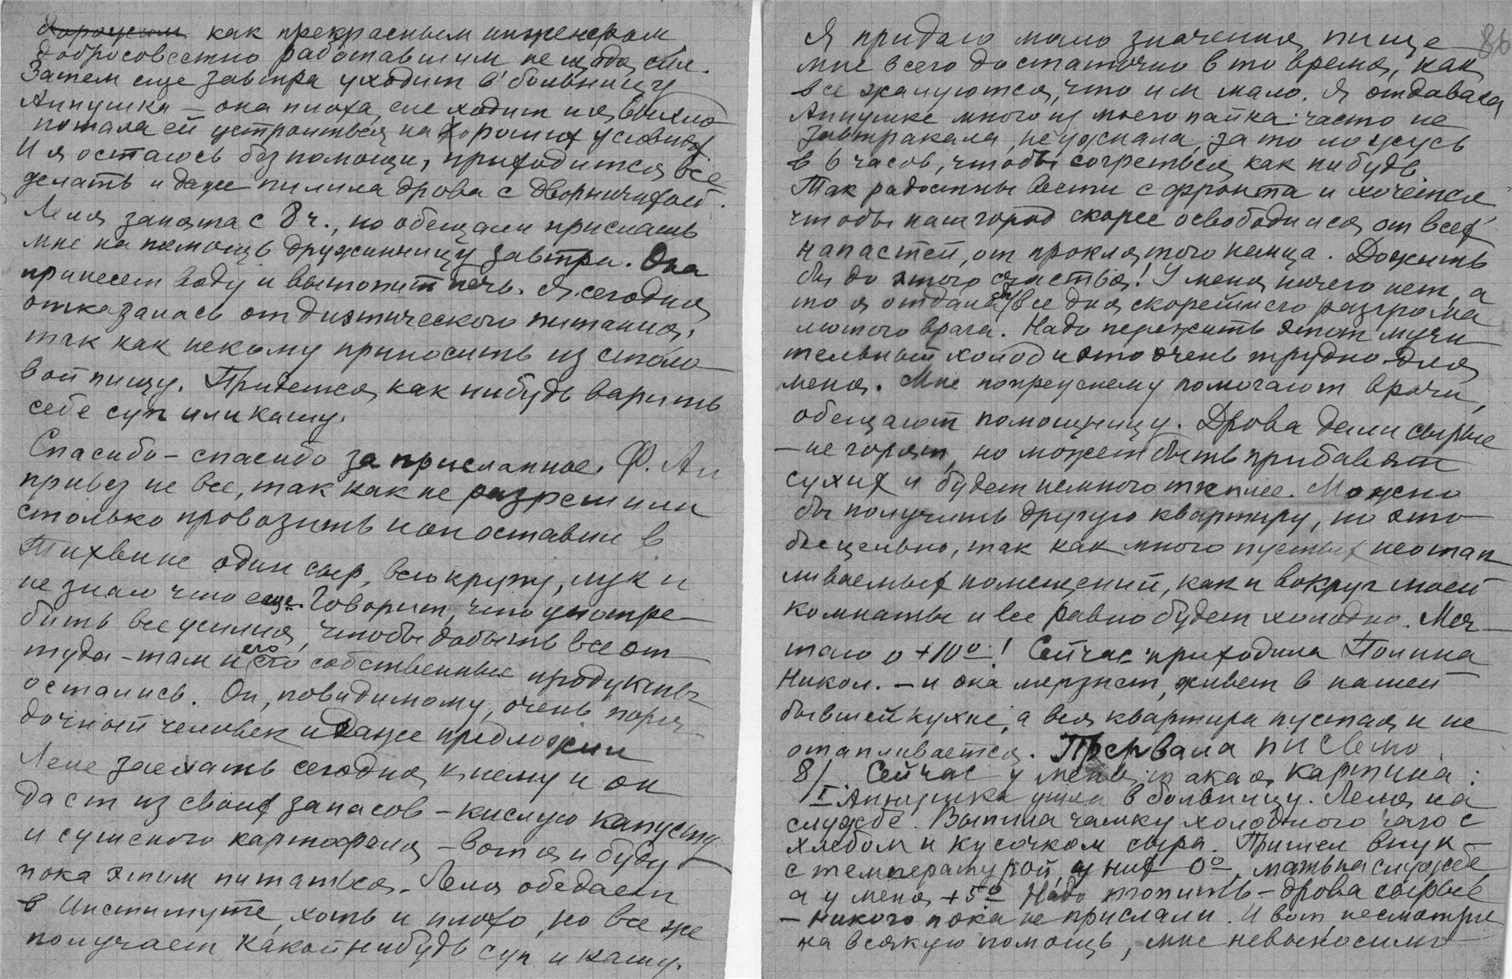 как прекрасным инженером
добросовестно работавшим не щадя сил.
Затем еще завтра уходит в больницу
Аннушка – она плоха, еле ходит и я
помогла ей устроиться на хороших условиях
И я остаюсь без помощи, приходится все
делать и даже пилила дрова с дворничихой.
Леля занята с 8 ч., но обещали прислать
мне на помощь дружинницу завтра. Она
принесет воду и вытопит печь. Я сегодня
отказалась от диэтического питания,
так как некому приносить из столо
вой пищу. Придется как нибудь варить
себе суп или кашу.
Спасибо – спасибо за присланное. Ф. Ан
привез не все, так как не разрешили
столько провозить и он оставил в
Тихвине один сыр, всю крупу, лук и
не знаю что еще. Говорит, что употре–
бить все усилия, чтобы добыть все от
туда – там и его собственные продукты
остались. Он, повидимому, очень поря
дочный человек и даже предложил
Леле заехать сегодня к нему и он
даст из своих запасов – кислую капусту
и сушеного картофеля – вот я и буду
пока этим питаться. Леля обедает
в Институте, хоть и плохо, но все же
получает какой нибудь суп и кашу.
86
Я придаю мало значения пище –
мне всего достаточно в то время, как
все жалуются, что им мало. Я отдавала
Аннушке много из моего пайка: часто не
завтракала, не ужинала, за то ложусь
в 6 часов, чтобы согреться как нибудь
Так радостны вести с фронта и хочется
чтобы наш город скорее освободился от всех
напастей, от проклятого немца. Дожить
бы до этого счастья! У меня ничего нет, а
то я отдала бы все для скорейшего разгрома
лютого врага. Надо пережить этот мучи
тельный холод и это очень трудно для
меня. Мне попрежнему помогают врачи,
обещают помощницу. Дрова дали сырые
– не горят, но может быть прибавят
сухих и будет немного теплее. Можно
бы получить другую квартиру, но это
бесцельно, так как много пустых неотап
ливаемых помещений, как и вокруг моей
комнаты и все равно будет холодно. Меч–
таю о +10°! Сейчас приходила Полина
Никол. – и она мерзнет, живет в нашей
бывшей кухне, а вся квартира пустая и не
отапливается. Прервала письмо.
8/I Сейчас у меня такая картина:
Аннушка ушла в больницу. Леля на
службе. Выпила чашку холодного чаю с
хлебом и кусочком сыра. Пришел внук –
с температурой, у них 0°, мать на службе
а у меня +5° Надо топить – дрова сырые
– никого пока не прислали. И вот, несмотря
на всякую помощь, мне невыносимо